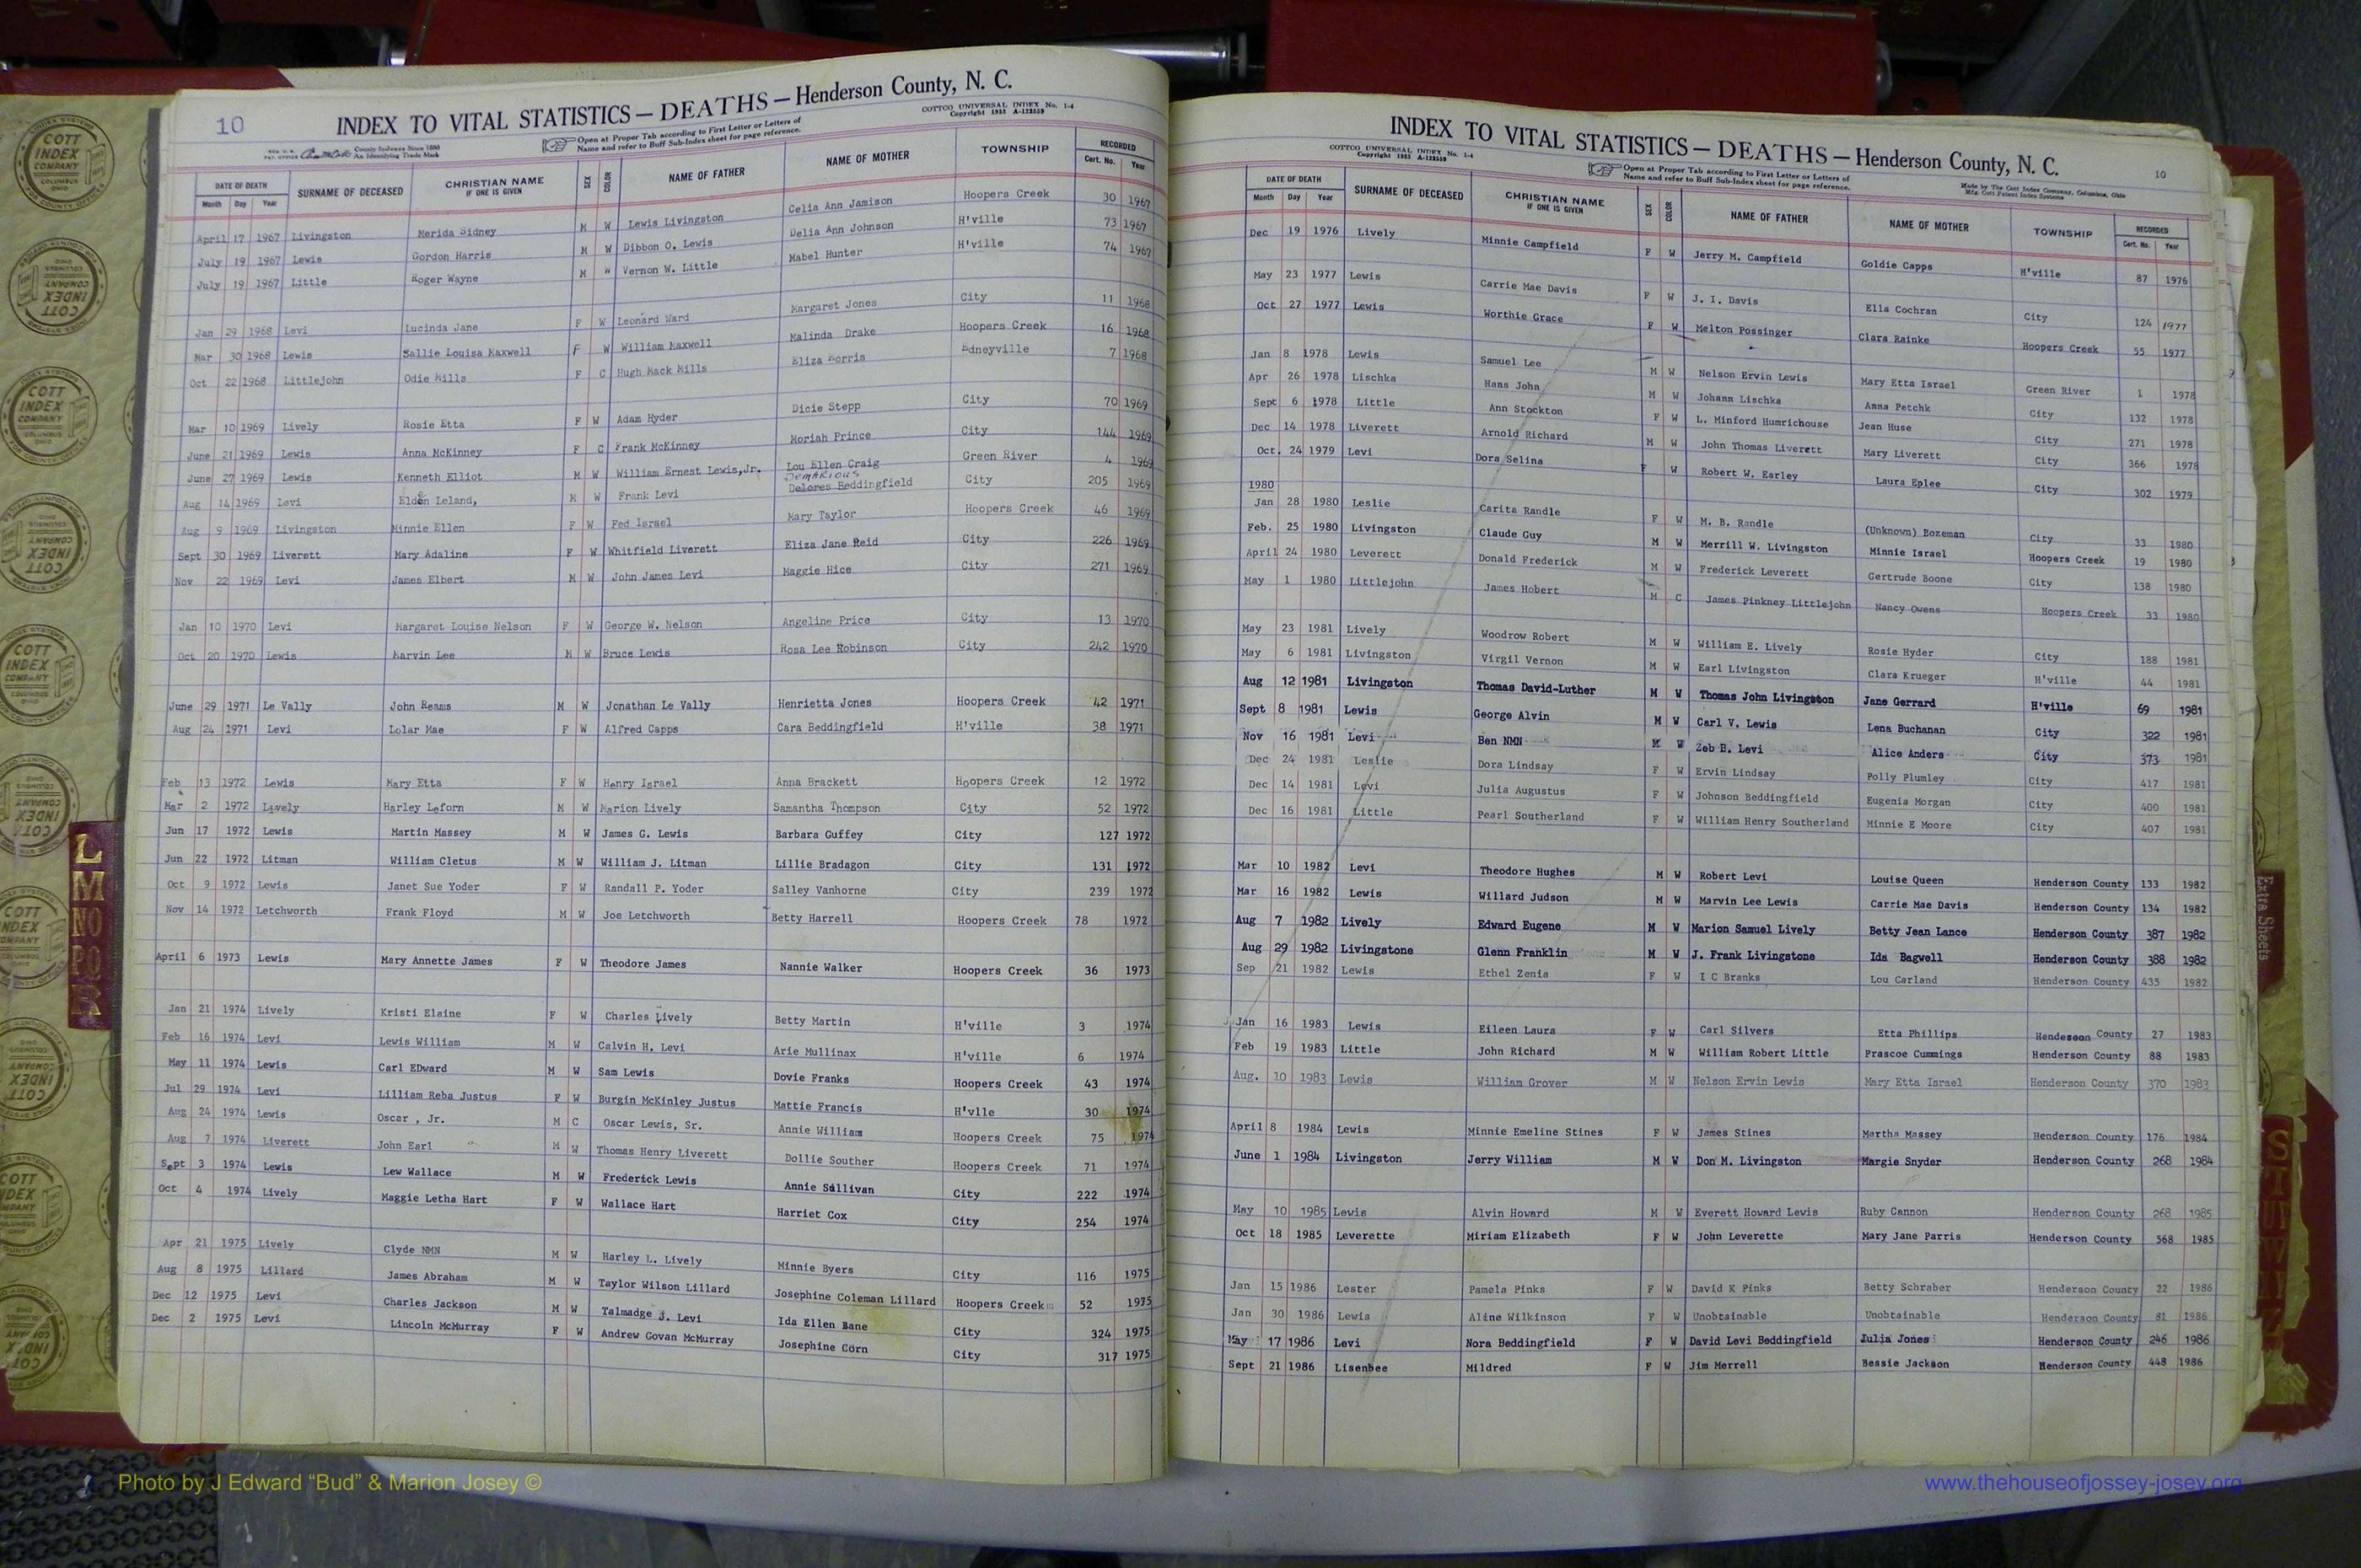 10
INDEX TO VITAL STATISTICS — DEATHS — Henderson County, N. C.
County Indexes Since 1888
An Identifying Trade Mark
Open at Proper Tab according to First Letter or Letters of
Name and refer to Buff Sub-Index sheet for page reference.
COTTCO UNIVERSAL INDEX No. 1-4
Copyright 1933 A-123559
DATE OF DEATH SURNAME OF DECEASED CHRISTIAN NAME IF ONE IS GIVEN SEX COLOR NAME OF FATHER NAME OF MOTHER TOWNSHIP RECORDED
Month Day Year Cert. No. Year
April 17 1967 Livingston Merida Sidney M W Lewis Livingston Celia Ann Jamison Hoopers Creek 30 1967
July 19 1967 Lewis Gordon Harris M W Dibbon O. Lewis Delia Ann Johnson H'ville 73 1967
July 19 1967 Little Roger Wayne M W Vernon W. Little Mabel Hunter H'ville 74 1967
Jan 29 1968 Levi Lucinda Jane F W Leonard Ward Margaret Jones City 11 1968
Mar 30 1968 Lewis Sallie Louisa Maxwell F W William Maxwell Malinda Drake Hoopers Creek 16 1968
Oct 22 1968 Littlejohn Odie Mills F C Hugh Mack Mills Eliza Norris Edneyville 7 1968
Mar 10 1969 Lively Rosie Etta F W Adam Hyder Dicie Stepp City 70 1969
June 21 1969 Lewis Anna McKinney F C Frank McKinney Moriah Prince City 144 1969
June 27 1969 Lewis Kenneth Elliot M W William Ernest Lewis,Jr. Lou Ellen Craig Green River 4 1969
Aug 14 1969 Levi Elden Leland, M W Frank Levi Demarious Delores Beddingfield City 205 1969
Aug 9 1969 Livingston Minnie Ellen F W Fed Israel Mary Taylor Hoopers Creek 46 1969
Sept 30 1969 Liverett Mary Adaline F W Whitfield Liverett Eliza Jane Reid City 226 1969
Nov 22 1969 Levi James Elbert M W John James Levi Maggie Hice City 271 1969
Jan 10 1970 Levi Margaret Louise Nelson F W George W. Nelson Angeline Price City 13 1970
Oct 20 1970 Lewis Marvin Lee M W Bruce Lewis Rosa Lee Robinson City 242 1970
June 29 1971 Le Vally John Reams M W Jonathan Le Vally Henrietta Jones Hoopers Creek 42 1971
Aug 24 1971 Levi Lolar Mae F W Alfred Capps Cara Beddingfield H'ville 38 1971
Feb 13 1972 Lewis Mary Etta F W Henry Israel Anna Brackett Hoopers Creek 12 1972
Mar 2 1972 Lively Harley Leforn M W Marion Lively Samantha Thompson City 52 1972
Jun 17 1972 Lewis Martin Massey M W James G. Lewis Barbara Guffey City 127 1972
Jun 22 1972 Litman William Cletus M W William J. Litman Lillie Bradagon City 131 1972
Oct 9 1972 Lewis Janet Sue Yoder F W Randall P. Yoder Salley Vanhorne City 239 1972
Nov 14 1972 Letchworth Frank Floyd M W Joe Letchworth Betty Harrell Hoopers Creek 78 1972
April 6 1973 Lewis Mary Annette James F W Theodore James Nannie Walker Hoopers Creek 36 1973
Jan 21 1974 Lively Kristi Elaine F W Charles Lively Betty Martin H'ville 3 1974
Feb 16 1974 Levi Lewis William M W Calvin H. Levi Arie Mullinax H'ville 6 1974
May 11 1974 Lewis Carl EDward M W Sam Lewis Dovie Franks Hoopers Creek 43 1974
Jul 29 1974 Levi Lilliam Reba Justus F W Burgin McKinley Justus Mattie Francis H'vlle 30 1974
Aug 24 1974 Lewis Oscar , Jr. M C Oscar Lewis, Sr. Annie William Hoopers Creek 75 1974
Aug 7 1974 Liverett John Earl M W Thomas Henry Liverett Dollie Souther Hoopers Creek 71 1974
Sept 3 1974 Lewis Lew Wallace M W Frederick Lewis Annie Sullivan City 222 1974
Oct 4 1974 Lively Maggie Letha Hart F W Wallace Hart Harriet Cox City 254 1974
Apr 21 1975 Lively Clyde NMN M W Harley L. Lively Minnie Byers City 116 1975
Aug 8 1975 Lillard James Abraham M W Taylor Wilson Lillard Josephine Coleman Lillard Hoopers Creek 52 1975
Dec 12 1975 Levi Charles Jackson M W Talmadge J. Levi Ida Ellen Bane City 324 1975
Dec 2 1975 Levi Lincoln McMurray F W Andrew Govan McMurray Josephine Corn City 317 1975
INDEX TO VITAL STATISTICS — DEATHS — Henderson County, N. C.
COTTCO UNIVERSAL INDEX No. 1-4
Copyright 1933 A-123559
Open at Proper Tab according to First Letter or Letters of
Name and refer to Buff Sub-Index sheet for page reference.
Made by The Cott Index Company, Columbus, Ohio
Mfg. Cott Patent Index Systems
10
DATE OF DEATH SURNAME OF DECEASED CHRISTIAN NAME IF ONE IS GIVEN SEX COLOR NAME OF FATHER NAME OF MOTHER TOWNSHIP RECORDED
Month Day Year Cert. No. Year
Dec 19 1976 Lively Minnie Campfield F W Jerry M. Campfield Goldie Capps H'ville 87 1976
May 23 1977 Lewis Carrie Mae Davis F W J. I. Davis Ella Cochran City 124 1977
Oct 27 1977 Lewis Worthie Grace F W Melton Possinger Clara Rainke Hoopers Creek 55 1977
Jan 8 1978 Lewis Samuel Lee M W Nelson Ervin Lewis Mary Etta Israel Green River 1 1978
Apr 26 1978 Lischka Hans John M W Johann Lischka Anna Petchk City 132 1978
Sept 6 1978 Little Ann Stockton F W L. Minford Humrichouse Jean Huse City 271 1978
Dec 14 1978 Liverett Arnold Richard M W John Thomas Liverett Mary Liverett City 366 1978
Oct. 24 1979 Levi Dora Selina F W Robert W. Earley Laura Eplee City 302 1979
1980
Jan 28 1980 Leslie Carita Randle F W M. B. Randle (Unknown) Bozeman City 33 1980
Feb. 25 1980 Livingston Claude Guy M W Merrill W. Livingston Minnie Israel Hoopers Creek 19 1980
April 24 1980 Leverett Donald Frederick M W Frederick Leverett Gertrude Boone City 138 1980
May 1 1980 Littlejohn James Hobert M C James Pinkney Littlejohn Nancy Owens Hoopers Creek 33 1980
May 23 1981 Lively Woodrow Robert M W William E. Lively Rosie Hyder City 188 1981
May 6 1981 Livingston Virgil Vernon M W Earl Livingston Clara Krueger H'ville 44 1981
Aug 12 1981 Livingston Thomas David-Luther M W Thomas John Livingston Jane Gerrard H'ville 69 1981
Sept 8 1981 Lewis George Alvin M W Carl V. Lewis Lena Buchanan City 322 1981
Nov 16 1981 Levi Ben NMN M W Zeb B. Levi Alice Anders City 373 1981
Dec 24 1981 Leslie Dora Lindsay F W Ervin Lindsay Polly Plumley City 417 1981
Dec 14 1981 Levi Julia Augustus F W Johnson Beddingfield Eugenia Morgan City 400 1981
Dec 16 1981 Little Pearl Southerland F W William Henry Southerland Minnie E Moore City 407 1981
Mar 10 1982 Levi Theodore Hughes M W Robert Levi Louise Queen Henderson County 133 1982
Mar 16 1982 Lewis Willard Judson M W Marvin Lee Lewis Carrie Mae Davis Henderson County 134 1982
Aug 7 1982 Lively Edward Eugene M W Marion Samuel Lively Betty Jean Lance Henderson County 387 1982
Aug 29 1982 Livingstone Glenn Franklin M W J. Frank Livingstone Ida Bagwell Henderson County 388 1982
Sep 21 1982 Lewis Ethel Zenia F W I C Branks Lou Carland Henderson County 435 1982
Jan 16 1983 Lewis Eileen Laura F W Carl Silvers Etta Phillips Hendeson County 27 1983
Feb 19 1983 Little John Richard M W William Robert Little Prascoe Cummings Henderson County 88 1983
Aug. 10 1983 Lewis William Grover M W Nelson Ervin Lewis Mary Etta Israel Henderson County 370 1983
April 8 1984 Lewis Minnie Emeline Stines F W James Stines Martha Massey Henderson County 176 1984
June 1 1984 Livingston Jerry William M W Don M. Livingston Margie Snyder Henderson County 268 1984
May 10 1985 Lewis Alvin Howard M W Everett Howard Lewis Ruby Cannon Henderson County 268 1985
Oct 18 1985 Leverette Miriam Elizabeth F W John Leverette Mary Jane Parris Henderson County 568 1985
Jan 15 1986 Lester Pamela Pinks F W David K Pinks Betty Schraber Henderson County 22 1986
Jan 30 1986 Lewis Aline Wilkinson F W Unobtainable Unobtainable Henderson County 81 1986
May 17 1986 Levi Nora Beddingfield F W David Levi Beddingfield Julia Jones Henderson County 246 1986
Sept 21 1986 Lisenbee Mildred F W Jim Merrell Bessie Jackson Henderson County 448 1986
COTT INDEX COMPANY COLUMBUS OHIO
L
M
NO
PQ
R
Extra Sheets
Photo by J Edward “Bud” & Marion Josey ©
www.thehouseofjossey-josey.org